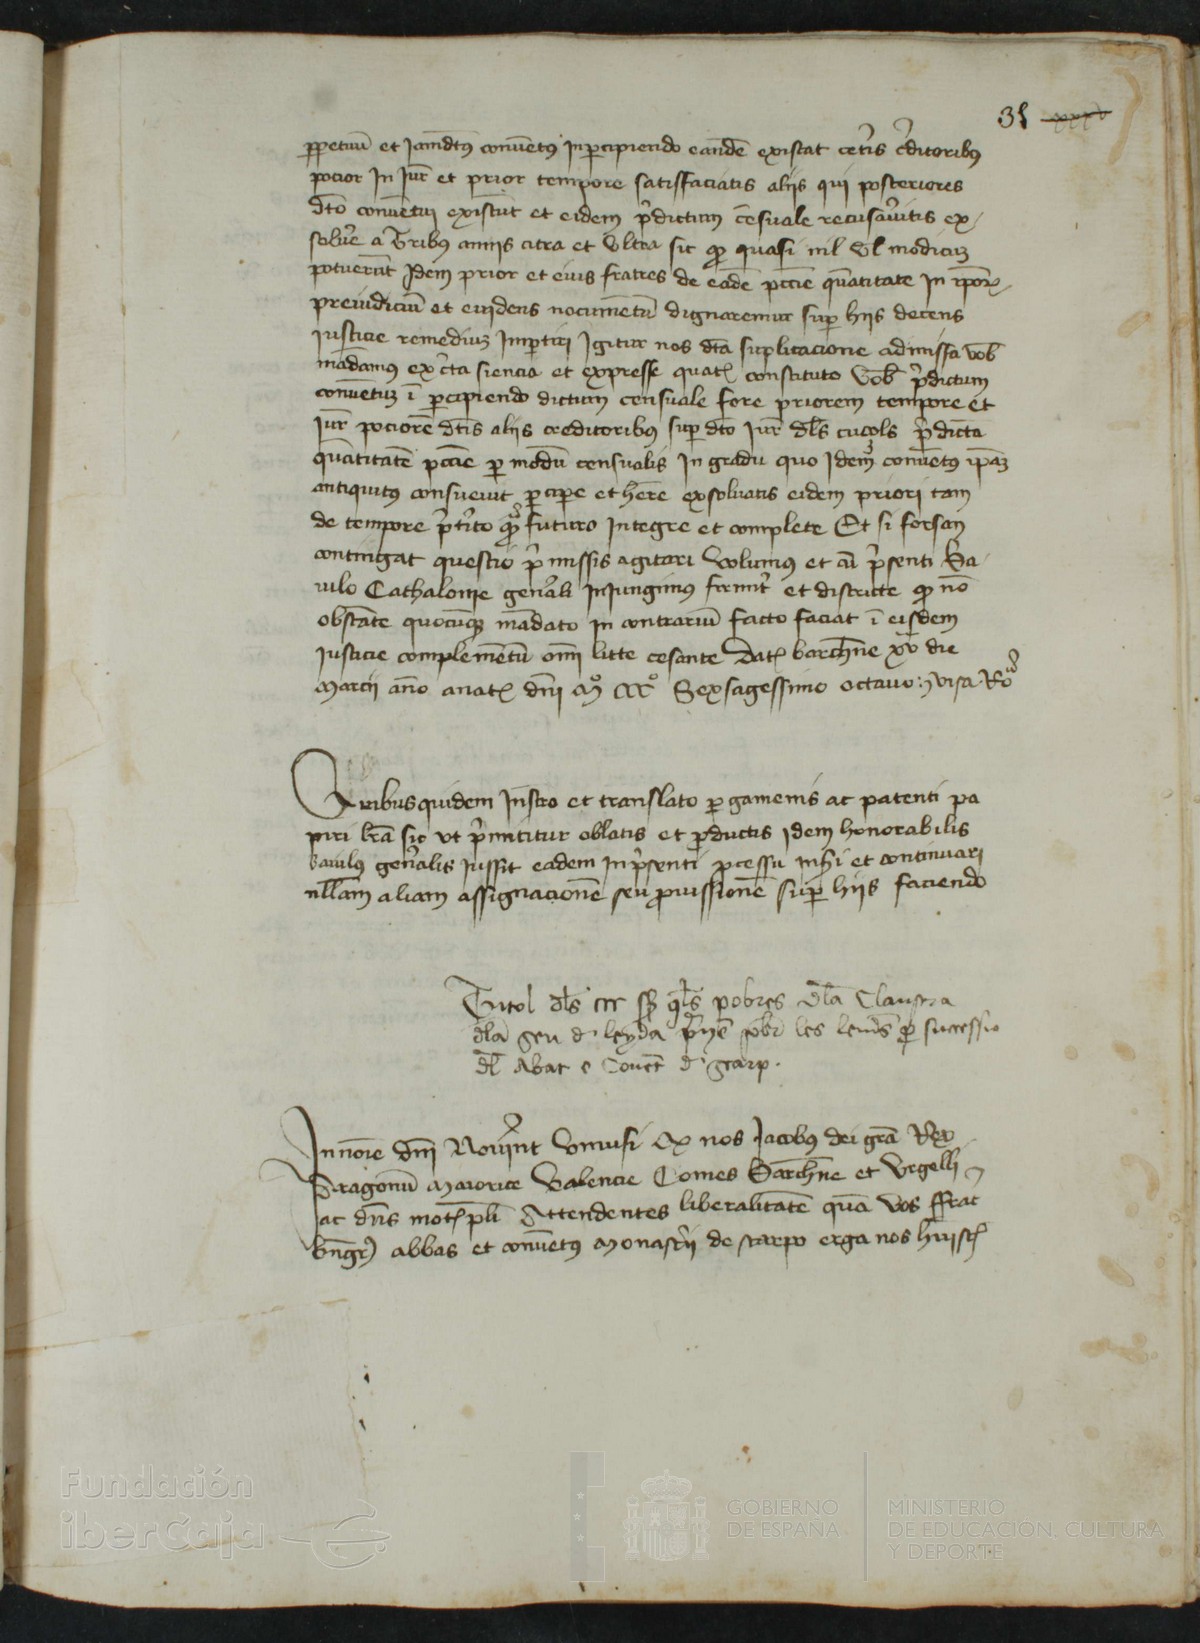 31 xxxv
ppetuu et iamdtus conventus in pcipiendo eande existat ceteris creditoribus
pocior in jur et prior tempore satisfaciatis aliis qui posteriores
dto conventui existut et eidem pdictum cesuale recusavitis ex
solvere a tribus annis citra et ultra sic quasi nil vl modicuz
potuerut idem prior et eius fratres de eade pccie quatitate in
preiudiciu et evidens nocumetu dignaremur sup hiis decens
iusticie remediuz impartiri Igitur nos dta suplicacione admissa vob
madamus ex certa siencia et expresse quat constituto vob pdictum
conventuz i pcipiendo dictum censuale fore priorem tempore et
jur pociore dtis aliis creditoribus sup dto jur dls cucols pdicta
quatitate pccie p modu censualis in gradu quo idem conventus ipaz
antiquitus consuevit pcipe et here exsolvatis eidem priori tam
de tempore ptito q futuro integre et complete Et si forsan
contingat questio pmissis agitari volumus et cu psenti Ba
iulo Cathalonie genali iniungimus firmit et districte q no
obstate quocuq madato in contrariu facto faciat i eisdem
iusticie complemetu omi litte cesante Dat barchne xv die
Marcii ano anat dni Mo CCCo Sexsagessimo octavo: visa Ro
Quibusquidem instro et translato pgamenis ac patenti pa
piri lra sic ut pmittitur oblatis et pductis idem honorabilis
baiulus genalis iussit eadem in psenti pcessu inhi et continuari
nllam aliam assignacione seu provissione sup hiis faciendo
Titol dls ccc qls pobres dla Claustra
dla seu d leyda les p successio
dl Abat e Covet d scarp.
In noie dni Noverint universi q nos Jacobus dei gra Rex
Aragonu Maiorice Valencie Comes Barchne et Urgelli
ac dns motispli Attendentes liberalitate qua vos ffrat
bngr abbas et conventus monastrii de scarpo erga nos
Fundación
iberCaja
GOBIERNO
DE ESPAÑA
MINISTERIO
DE EDUCACIÓN, CULTURA
Y DEPORTE